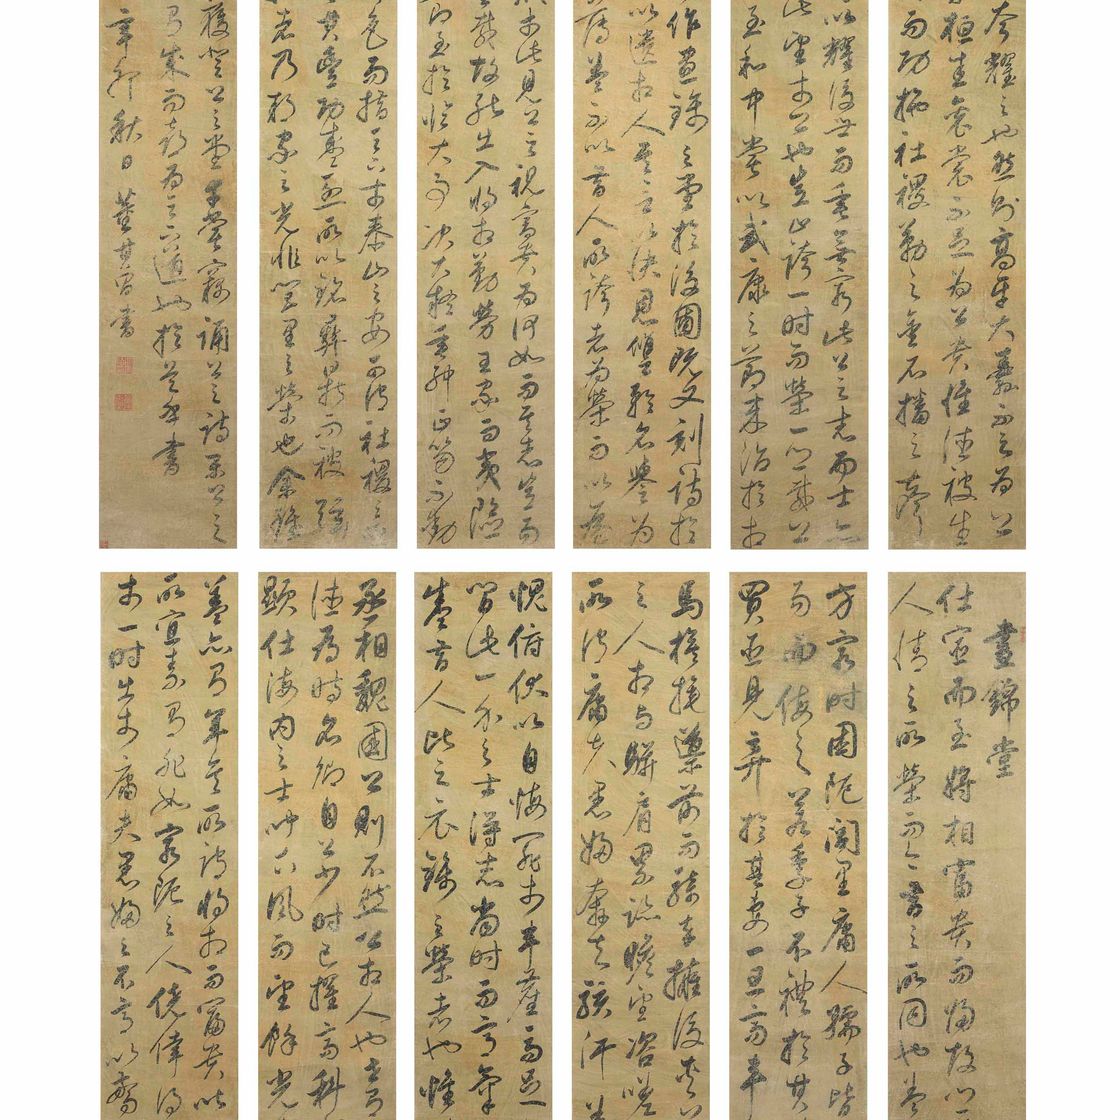 晝錦堂
仕宦而至將相富貴而歸故鄉
人情之所榮而今昔之所同也蓋
方窮時困阨閭里庸人孺子皆
而侮之若季子不禮於其
買臣見棄於其妻一旦高車
馬旗旄導前而騎卒擁後夾道
之人相與駢肩累跡瞻望咨嗟
所謂庸夫愚婦奔走駭汗羞
愧俯伏以自悔罪於車塵馬足
間此一介之士得志當時而意氣
盛昔人比之衣錦之榮者也惟
丞相魏國公則不然公相人也世有
德為時名卿自公少時已擢高科
顯仕海內之士聞下風而望餘光
蓋亦有年矣所謂將相而富貴皆
所宜素有非如窮阨之人僥倖得
於一時出於庸夫愚婦之不意以驚
夸耀之也然則高牙大纛不足為公
桓圭袞裳不足為公貴惟德被生
而功施社稷勒之金石播之聲
以耀後世而垂無窮此公之志而士亦
此望於公也豈止誇一時而榮一鄉哉公
至和中嘗以武康之節來治於相
作晝錦之堂於後圃既又刻詩於
以遺相人其言以快恩讎矜名譽為
薄蓋不以昔人所誇者為榮而以為
於此見公之視富貴為何如而其志豈易
哉故能出入將相勤勞王家而夷險
即至於臨大事決大議垂紳正笏不動
色而措天下於泰山之安可謂社稷之
其豐功盛烈所以銘彝鼎而被絃
者乃邦家之光非閭里之榮也余雖
獲登公之堂幸嘗竊誦公之詩樂公之
有成而喜為天下道也於是乎書
辛卯秋日董其昌書